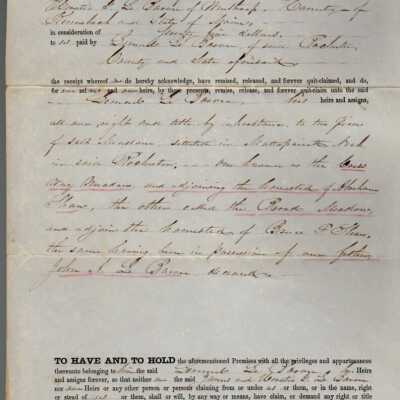 Le Baron of Winthrop County of
Kennebeck and State of Maine
in consideration of twenty five dollars
to us paid by Lemuel Le Baron of said Rochester
County and State aforesaid
the receipt whereof we do hereby acknowledge, have remised, released, and forever quit-claimed, and do,
for our selves and our heirs, by these presents, remise, release, and forever quit-claim unto the said
Lemuel Le Baron, his heirs and assigns,
all our right and title by inheritance to two pieces
of salt Meadow situated in Mattapoisett
in said Rochester one known as the
Meadow, and adjoining the homestead of
Shaw, the other called the Meadow,
and adjoin the homestead of
the same having been in possession of our father
John Le Baron deceased
TO HAVE AND TO HOLD the aforementioned Premises with all the privileges and appurtenances
thereunto belonging to him the said Lemuel Le Baron, his Heirs
and assigns forever, so that neither we the said and Le Baron
nor our Heirs or any other person or persons claiming from or under us or them, or in the name, right
or stead of us or them, shall or will, by any way or means, have claim, or demand any right or title